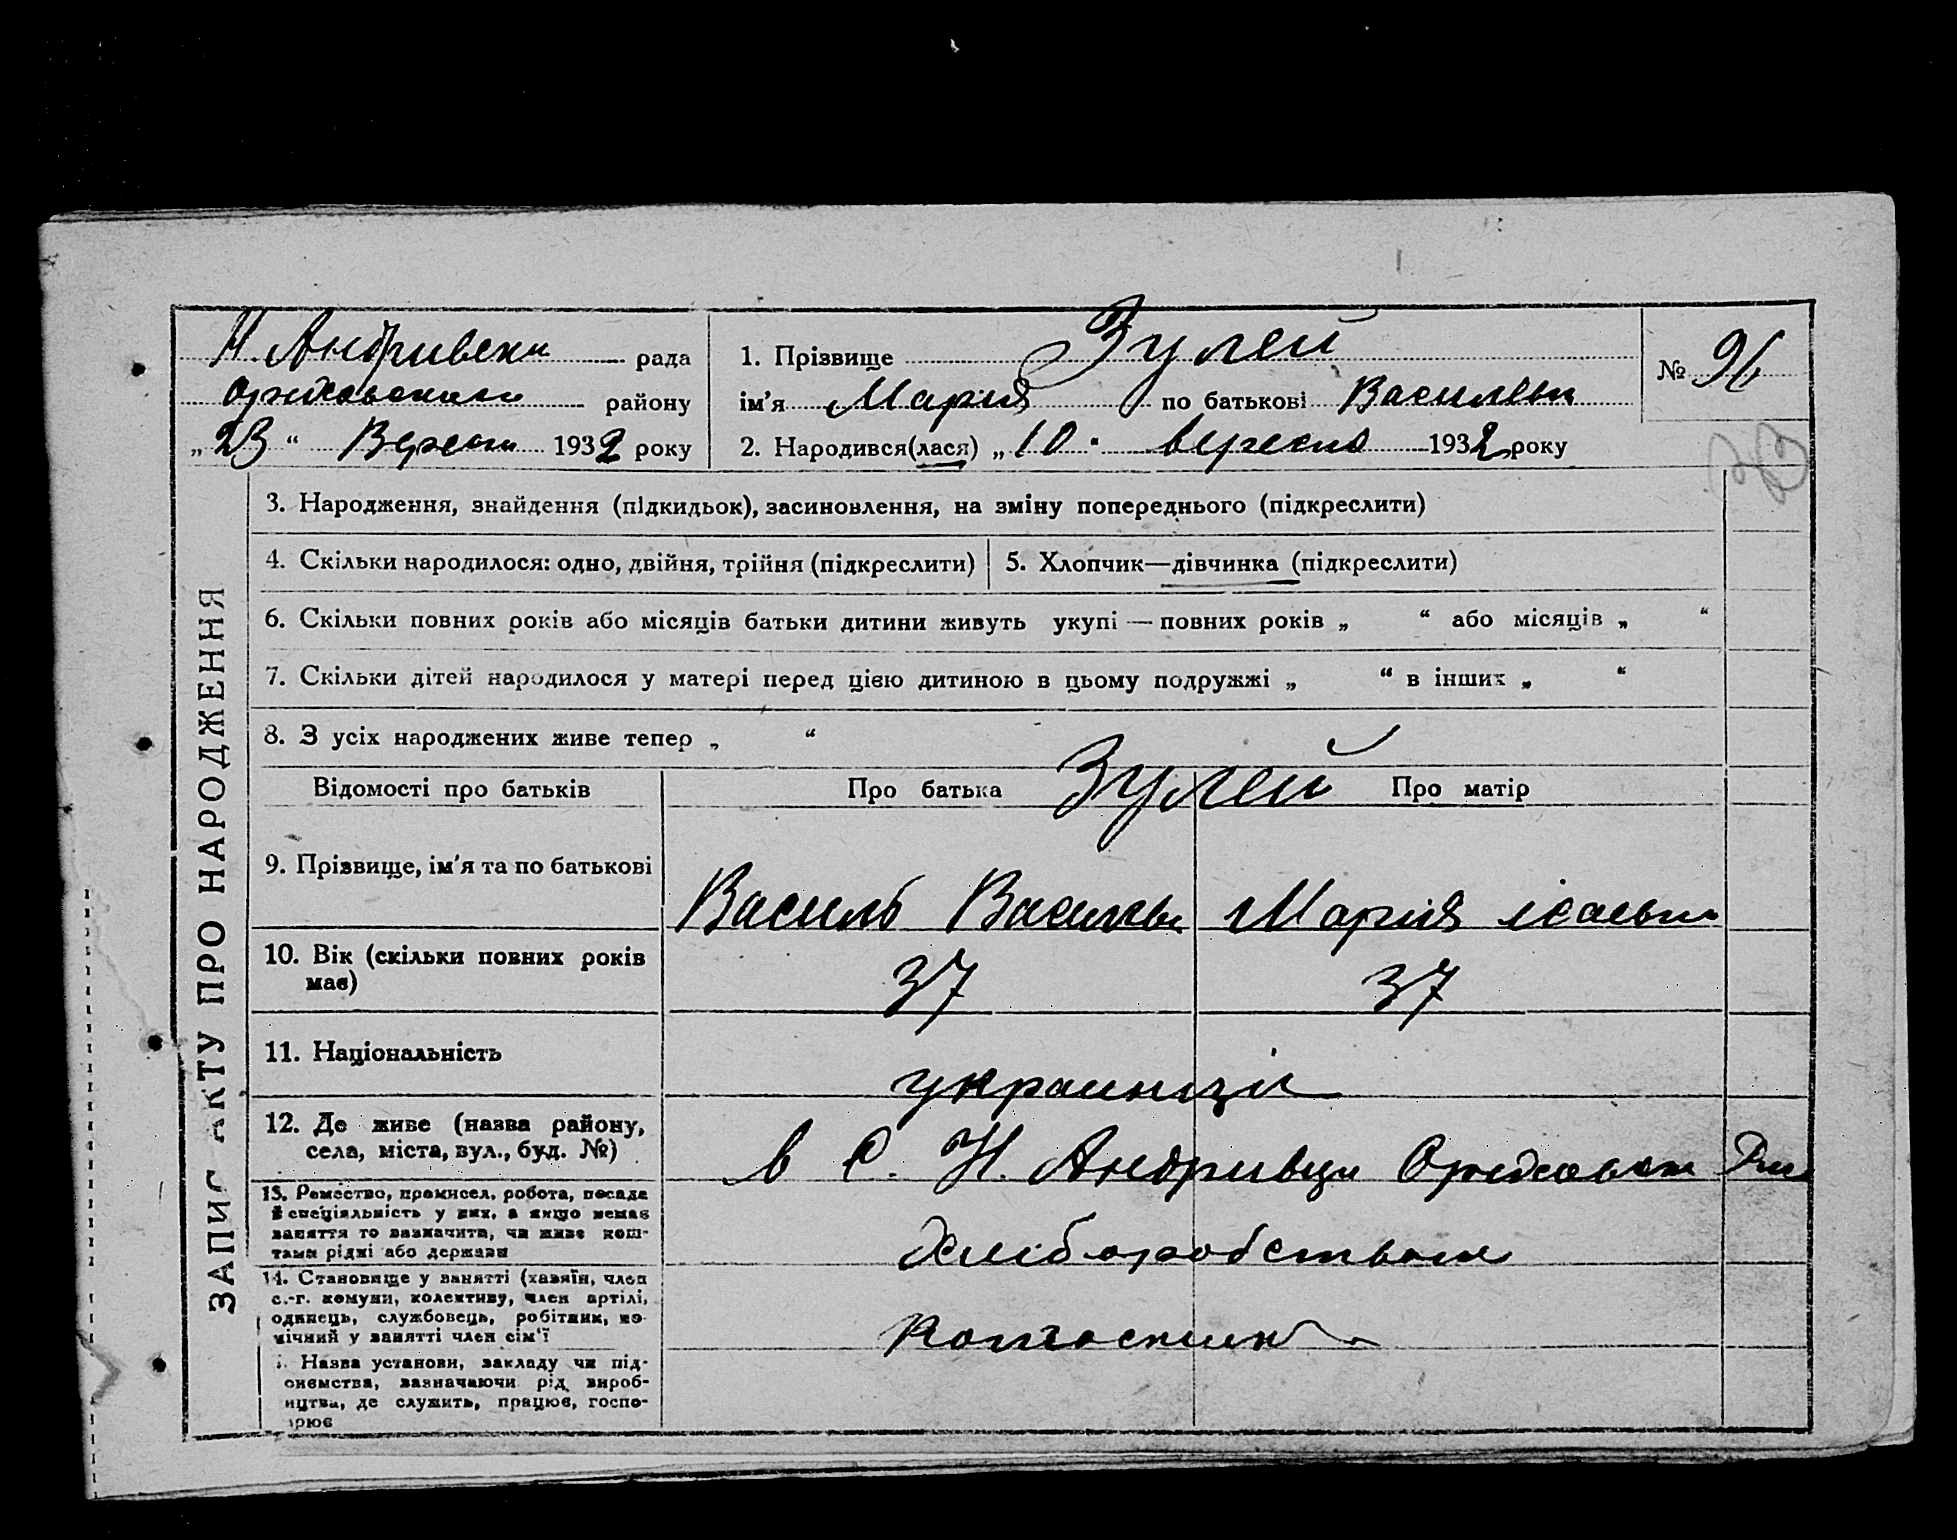 Н. Андривски рада
Оржовским району
„23“ Вересни 1932 року
1. Прізвище Зулей
ім'я Мария по батькові Васильви
2. Народився(лася) „10. вересня 1932 року
№ 96
33
ЗАПИС АКТУ ПРО НАРОДЖЕННЯ
3. Народження, знайдення (підкидьок), засиновлення, на зміну попереднього (підкреслити)
4. Скільки народилося: одно, двійня, трійня (підкреслити)
5. Хлопчик—дівчинка (підкреслити)
6. Скільки повних років або місяців батьки дитини живуть укупі — повних років „ “ або місяців „ “
7. Скільки дітей народилося у матері перед цією дитиною в цьому подружжі „ “ в інших „ “
8. З усіх народжених живе тепер „ “
Відомості про батьків Про батька Зулей Про матір
9. Прізвище, ім'я та по батькові
Василь Васильв Мария
10. Вік (скільки повних років
має)
37 37
11. Національність
украинци
12. Де живе (назва району,
села, міста, вул., буд. №)
в С. Н. Андривци
13. Ремество, промисел, робота, посада
й спеціяльність у них, а якщо немає
заняття то зазначити, чи живе кош-
тами рідні або держави
хліборобством
14. Становище у занятті (хазяїн, член
с.-г. комуни, колективу, член артілі,
одинець, службовець, робітник, по-
мічний у занятті член сім'ї
колгоспник
Назва установи, закладу чи під-
ємства, зазначаючи рід вироб-
ицтва, де служить, працює, госпо-
рює